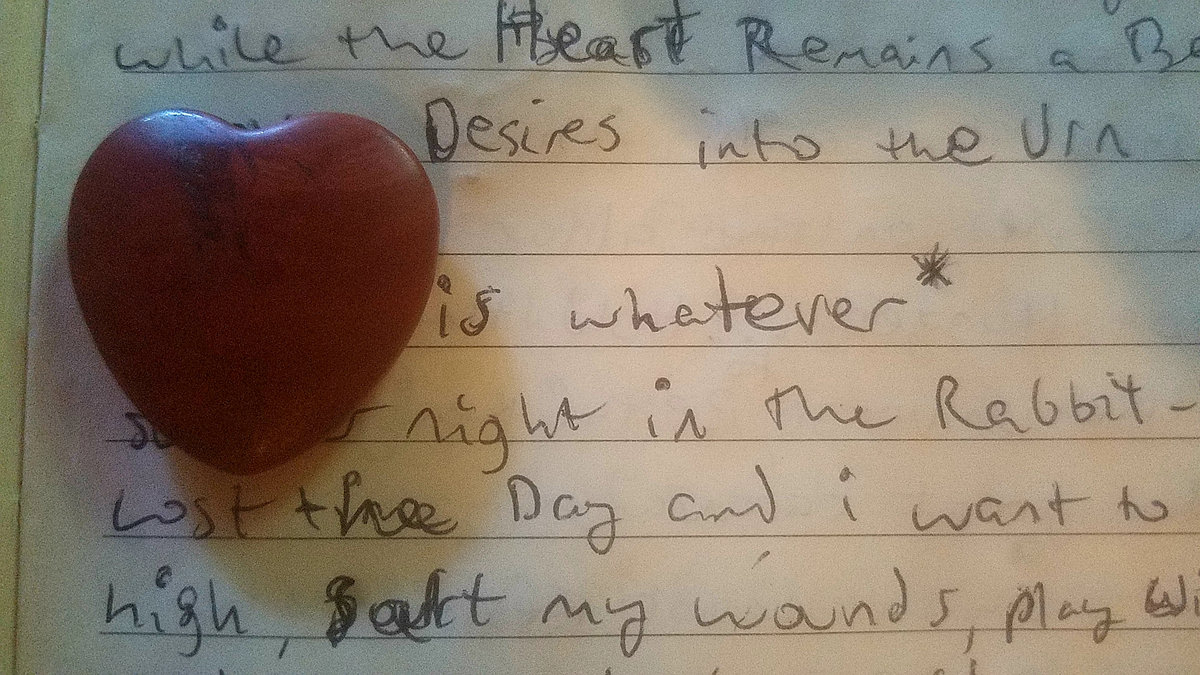 while the Heart Remains a Be
Desires into the Urn
is whatever*
night in the Rabbit-
Lost + free Day and i want to
high, salt my wounds, play Wi